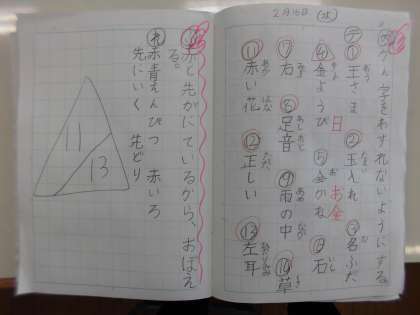 2月16日(水)
め かん字をわすれないようにする。
テ
①王さま ②玉入れ ③名ふだ
④金ようび 日 ⑤金がね お金 ⑥石
⑦右 ⑧足音 ⑨雨の中 ⑩草
⑪赤い花 ⑫正しい ⑬左耳
赤と先がにているから、おぼえ
る。
れ 赤青えんぴつ 赤いろ
先にいく 先どり
11
13